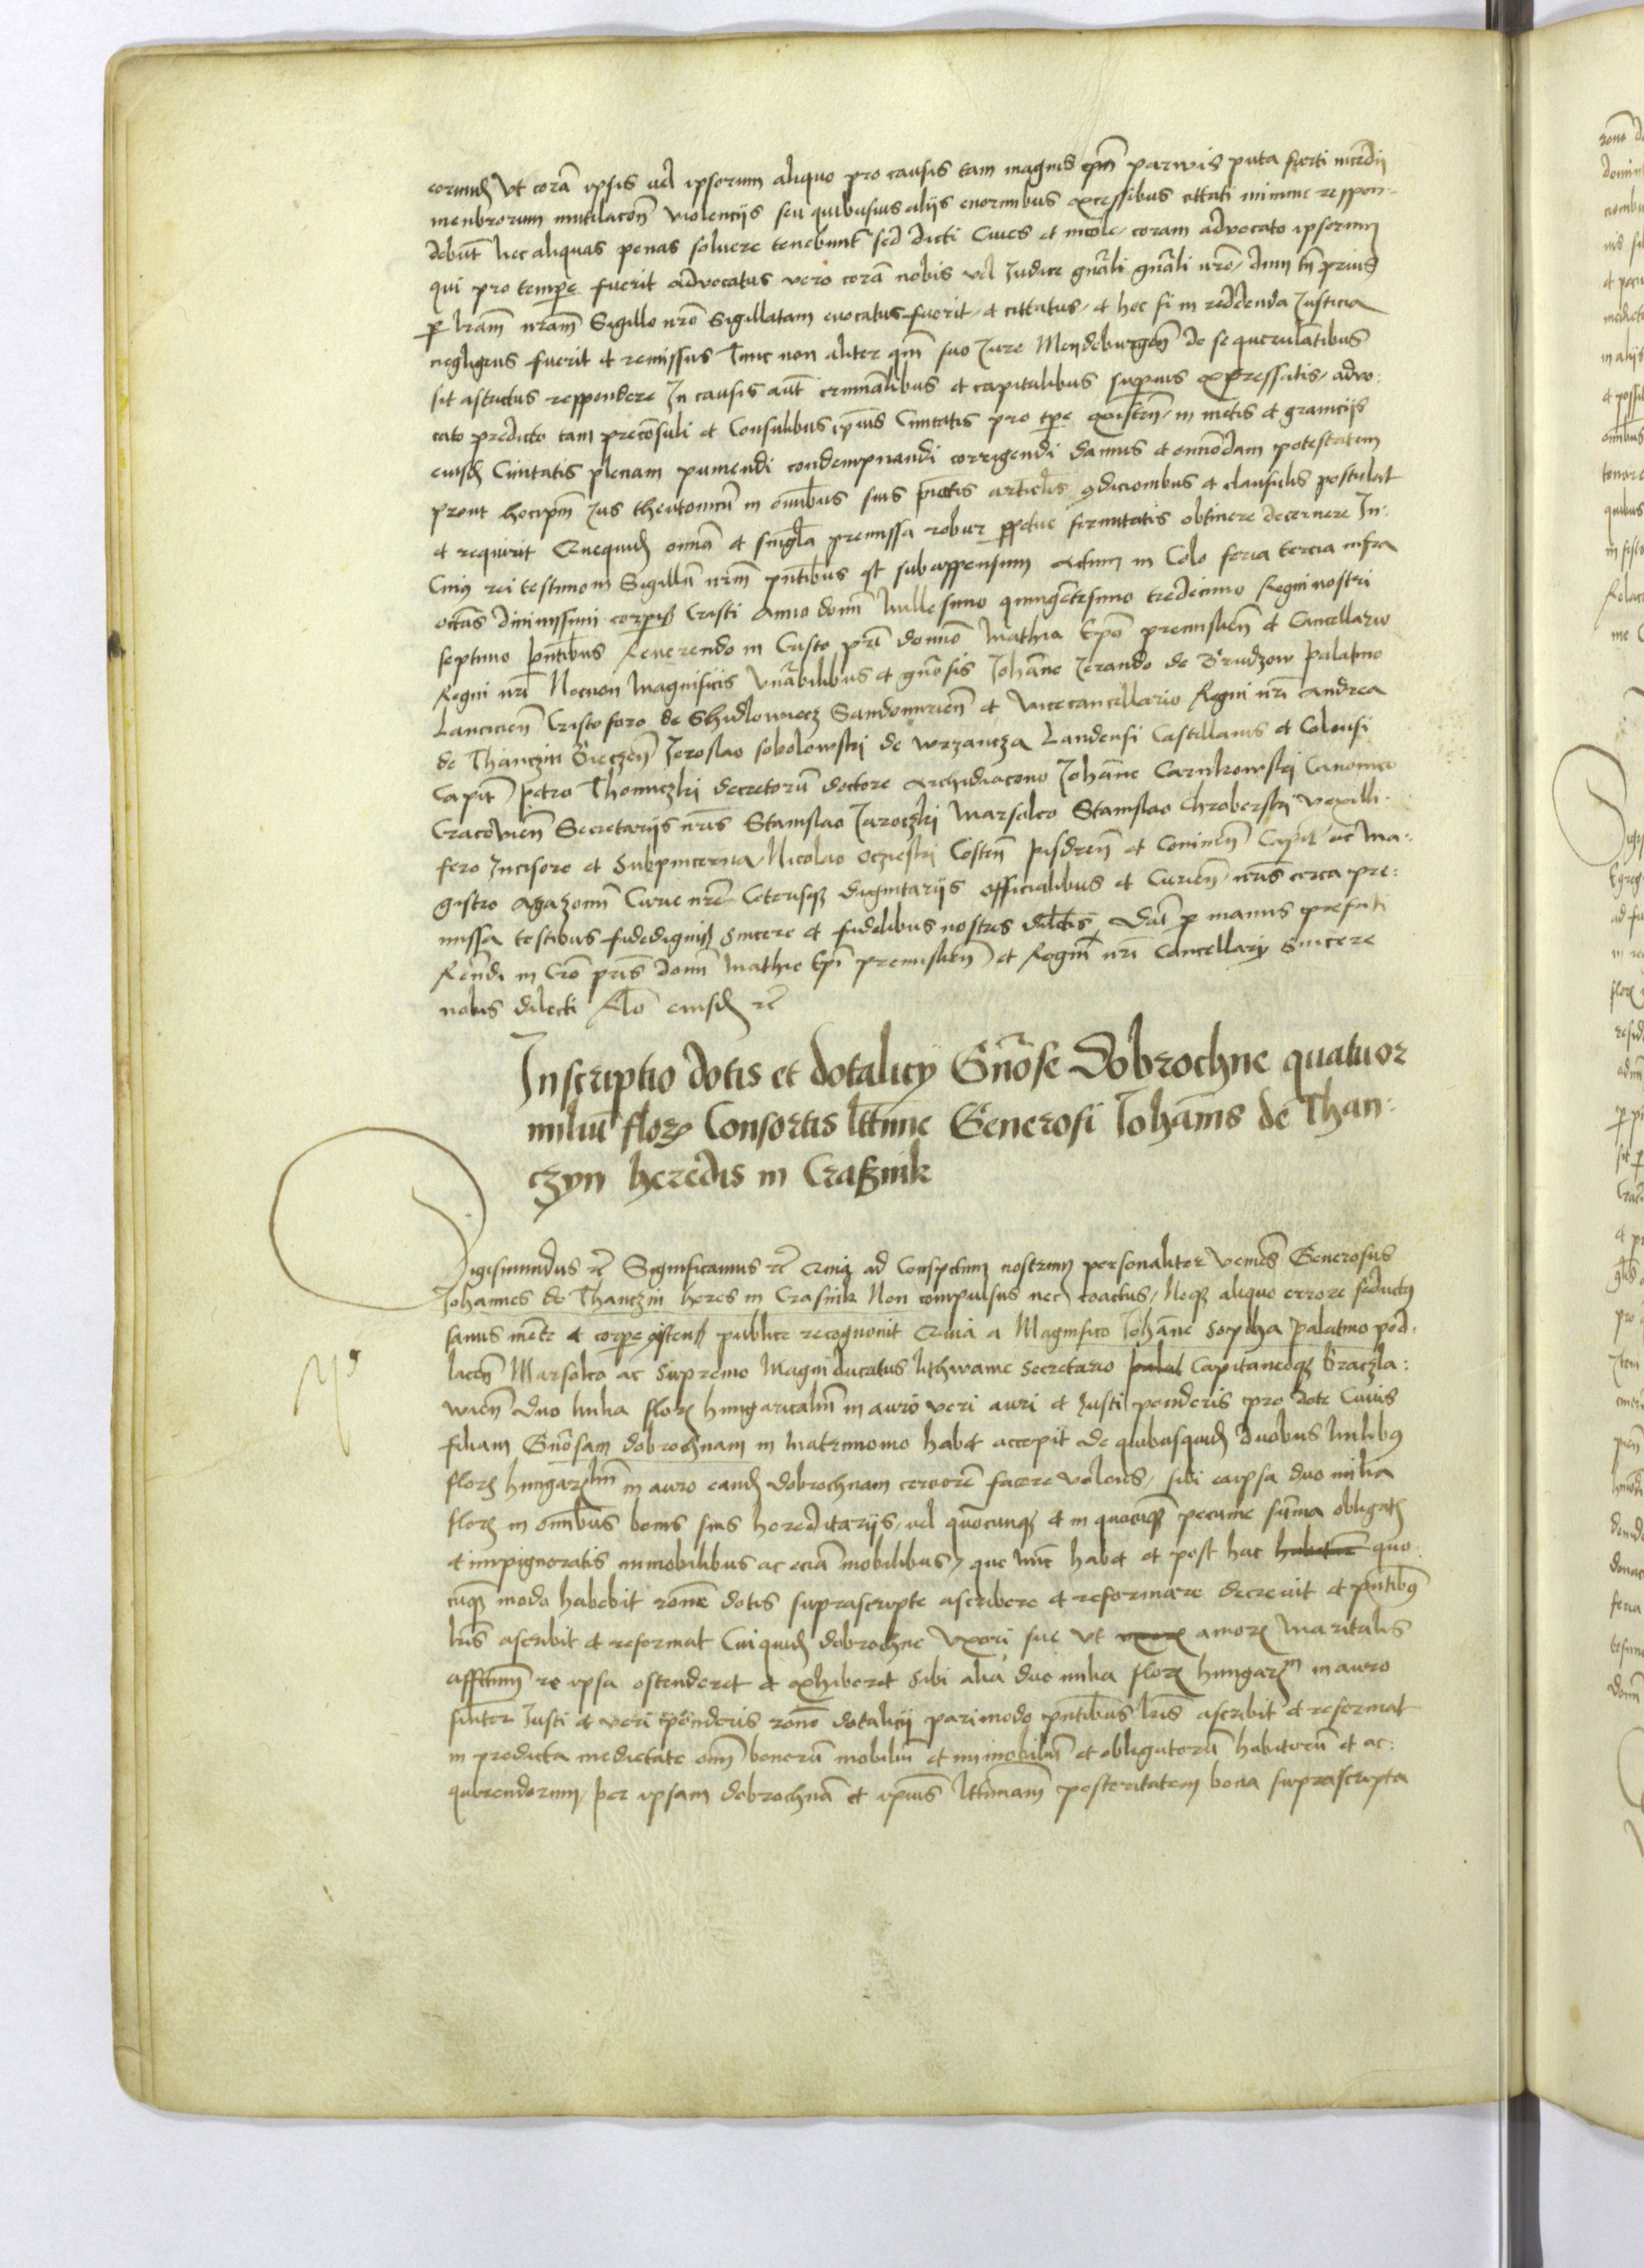 eorundem Ut corā ipsis vel ipsorum aliquo pro causis tam magnis qm̄ parwis puta furti incēdii
menbrorum mutilacōn violencijs seu quibusvis alijs enormibus excessibus cittati minime respon-
debūt nec aliquas penas soluere tenebunt̄ sed dicti Cives et incole coram advocato ipsorum
qui pro tempe fuerit advocatus vero corā nobis vel Judice gn̄ali gn̄ali nr̄o / dum tn̄ prius
p lrām nrām Sigillo nr̄o Sigillatam evocatus fuerit / et cittatus / et hoc si in reddenda Justicia
negligens fuerit et remissus Tunc non aliter qm̄ suo Jure Meydeburgen̄ de se querulātibus
sit astrictus respondere In causis aūt criminālibus et capitalibus superius expressatis / advo:
cato predicto tam precōsuli et Consulibus ip̄ius Civitatis pro tp̄e existen̄ / in metis et graniciis
eiusd Civitatis plenam puniendi condempnandi corrigendi damus et omnōdam potestatem
prout hocip̄m Jus theutonicū in om̄ibus suis pūctis articl̄is 9dicionibus et clausulis postulat
et requirit Quequid om̄ia et singl̄a premissa robur ppetue firmitatis obtinere decernere In:
Cuiꝰ rei testimoni Sigillū nrm̄ pn̄tibus est subappensum Actum in Colo feria tercia infra
octās divinissimi corporis Cristi Anno domi Millesimo quingētesimo tredecimo Regni nostri
septimo pn̄tibus Reverendo in Cristo pr̄e domio Mathia Epō premislien̄ et Cancellario
Regni nr̄i Necnon Magnificis Vn̄abilibus et gn̄osis Johāne Jerando de Brudzow palatino
Lancicien̄ Cristoforo de Schidlowiecz Sandomirien̄ et Vicecancellario Regni nr̄i Andrea
de Thanczin Bieczen̄ Jeroslao sobolowski de wrzancza Landensi Castellanis et Colensi
Capit̄ Petro Thomiczki decretorū doctore Archidiacono Johāne Carnkowski Canonico
Cracovien̄ Secretarijs nr̄is Stanislao Jaroczki Marsalco Stanislao Chroberski Vexilli-
fero Incisore et Subpincerna Nicolao Oczieski Costen̄ pisdren̄ et Coninen̄ Capit̄ ac Ma:
gistro Agazonū Curie nr̄e Ceterisqz dignitarijs officialibus et Curien̄ nr̄is circa pre:
missa testibus fidedignis sincere et fidelibus nostris dilctis Dat̄ p manus prefati
Rēndi in Crō pr̄is domi Mathie Ep̄i premislien̄ et Regni nr̄i Cancellarij Sincere
nobis dilecti Rlō eiusd rc̄
Inscriptio dotis et dotalicij Gn̄ose Dobrochne quatuor
miliū flor Consortis lttime Generosi Johānis de Than:
czyn heredis in Crasznik
Sigismundus rc̄ Significamus rc̄ Quia ad Conspectum nostrum personaliter veniēs Generosus
Johannes de Thanczin heres in Crasnik Non compulsus nec coactus / Neqz aliquo errore seductꝰ
sanus mēte et corpe existens publice recognovit Quia a Magnifico Johāne Sopiha palatino pod-
lacen̄ Marsalco ac Supremo Magni ducatus lithwanie Secretario palat Capitaneoqz Braczla:
wien̄ duo milia flor hungaricaliū in auro veri auri et Justi ponderis pro dote Cuius
filiam Gn̄osam dobrochnam in Matrimonio habet accepit De quibusquid duobus milibꝰ
flor hungarlm̄ in auro eand Dobrochnam cerciorē facere volens / sibi eaipsa duo milia
flor in om̄ibus bonis suis hereditarijs / vel quocunqz et in quacūqz pecunie sūma obligat
et impignoratis immobilibus ac eciā mobilibus / que nūc habet et post hac habebit quo-
cūqz modo habebit rōne dotis suprascripte ascribere et reformare decrevit et pn̄tibꝰ
lris ascribit et reformat Cuiquid dobrochne Uxori sue Ut amor Maritalis
affectum re ipsa ostenderet et exhiberet Sibi alia duo milia flor hungarm̄ in auro
similiter Justi et veri ponderis rōne dotalicij parimodo pn̄tibus lris ascribit et reformat
in predicta medietate om̄ bonorū mobiliū et immobiliū et obligatorū habitorū et ac:
quirendorum / per ipsam dobrochnā et ip̄ius lttimam posteritatem bona suprascripta